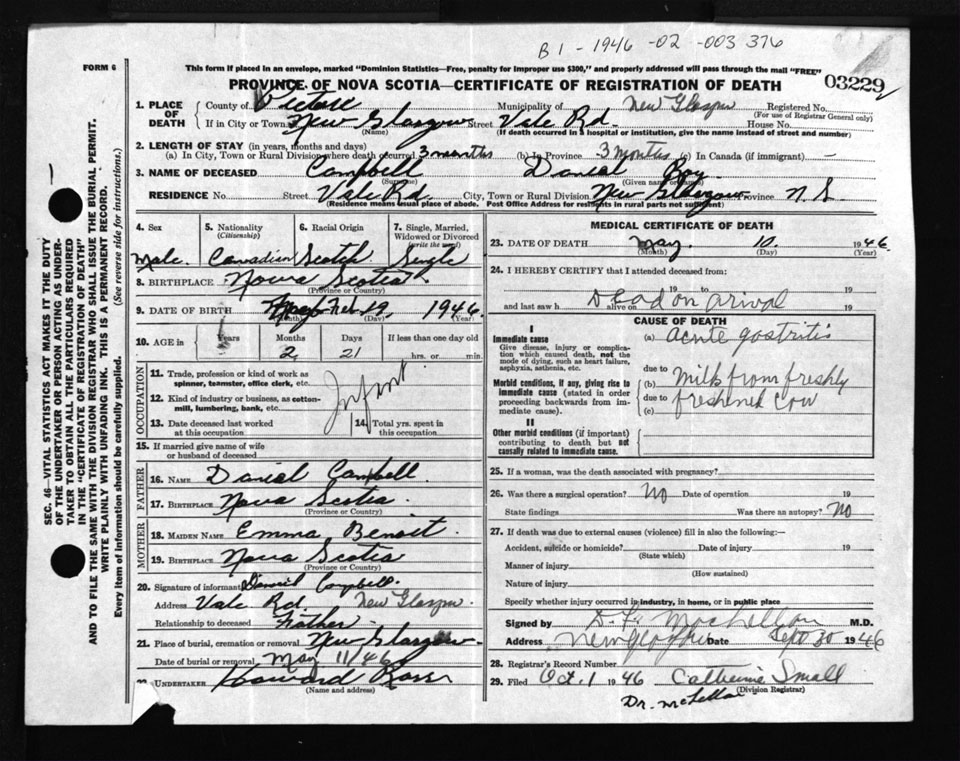 B 1 - 1946 - 02 - 003 376
FORM 6
This form if placed in an envelope, marked "Dominion Statistics—Free, penalty for improper use $300," and properly addressed will pass through the mail "FREE"
PROVINCE OF NOVA SCOTIA—CERTIFICATE OF REGISTRATION OF DEATH
03229
1. PLACE OF DEATH
County of Pictou Municipality of New Glasgow Registered No.
(For use of Registrar General only)
If in City or Town New Glasgow Street Vale Rd. House No.
(Name) (If death occurred in a hospital or institution, give the name instead of street and number)
2. LENGTH OF STAY (in years, months and days)
(a) In City, Town or Rural Division where death occurred 3 months (b) In Province 3 months (c) In Canada (if immigrant) -
3. NAME OF DECEASED Campbell Daniel Roy
(Surname) (Given names)
RESIDENCE No. Street Vale Rd. City, Town or Rural Division New Glasgow Province N. S.
(Residence means usual place of abode. Post Office Address for residents in rural parts not sufficient)
4. Sex 5. Nationality (Citizenship) 6. Racial Origin 7. Single, Married, Widowed or Divorced (write the word)
Male Canadian Scotch Single
8. BIRTHPLACE Nova Scotia
(Province or Country)
9. DATE OF BIRTH Feb 19 1946
(Month) (Day) (Year)
10. AGE in Years Months Days If less than one day old
2 21 hrs. or min.
OCCUPATION
11. Trade, profession or kind of work as spinner, teamster, office clerk, etc.
12. Kind of industry or business, as cotton-mill, lumbering, bank, etc.
Infant
13. Date deceased last worked at this occupation
14. Total yrs. spent in this occupation
15. If married give name of wife or husband of deceased
FATHER
16. NAME Daniel Campbell
17. BIRTHPLACE Nova Scotia
(Province or Country)
MOTHER
18. MAIDEN NAME Emma Benoit
19. BIRTHPLACE Nova Scotia
(Province or Country)
20. Signature of informant Daniel Campbell.
Address Vale Rd. New Glasgow.
Relationship to deceased Father
21. Place of burial, cremation or removal New Glasgow.
Date of burial or removal May 11/46
22. UNDERTAKER Howard Ross
(Name and address)
MEDICAL CERTIFICATE OF DEATH
23. DATE OF DEATH May. 10. 1946
(Month) (Day) (Year)
24. I HEREBY CERTIFY that I attended deceased from:
19 to 19
and last saw h alive on 19
Dead on arival
CAUSE OF DEATH
I
Immediate cause (a) acute gastritis
Give disease, injury or complication which caused death, not the mode of dying, such as heart failure, asphyxia, asthenia, etc.
due to
Morbid conditions, if any, giving rise to immediate cause (stated in order proceeding backwards from immediate cause).
(b) milk from freshly
due to freshened cow
(c)
II
Other morbid conditions (if important) contributing to death but not causally related to immediate cause.
25. If a woman, was the death associated with pregnancy?
26. Was there a surgical operation? No Date of operation 19
State findings Was there an autopsy? No
27. If death was due to external causes (violence) fill in also the following:—
Accident, suicide or homicide? Date of injury 19
(State which)
Manner of injury
(How sustained)
Nature of injury
Specify whether injury occurred in industry, in home, or in public place
Signed by M.D.
Address New Glasgow Date Sept 30 1946
28. Registrar's Record Number
29. Filed Oct. 1 1946 Catherine Small
(Division Registrar)
Dr. McLellan
SEC. 46—VITAL STATISTICS ACT MAKES IT THE DUTY OF THE UNDERTAKER OR PERSON ACTING AS UNDERTAKER TO OBTAIN ALL THE PARTICULARS REQUIRED IN THE "CERTIFICATE OF REGISTRATION OF DEATH" AND TO FILE THE SAME WITH THE DIVISION REGISTRAR WHO SHALL ISSUE THE BURIAL PERMIT.
WRITE PLAINLY WITH UNFADING INK. THIS IS A PERMANENT RECORD.
Every item of information should be carefully supplied. (See reverse side for instructions.)